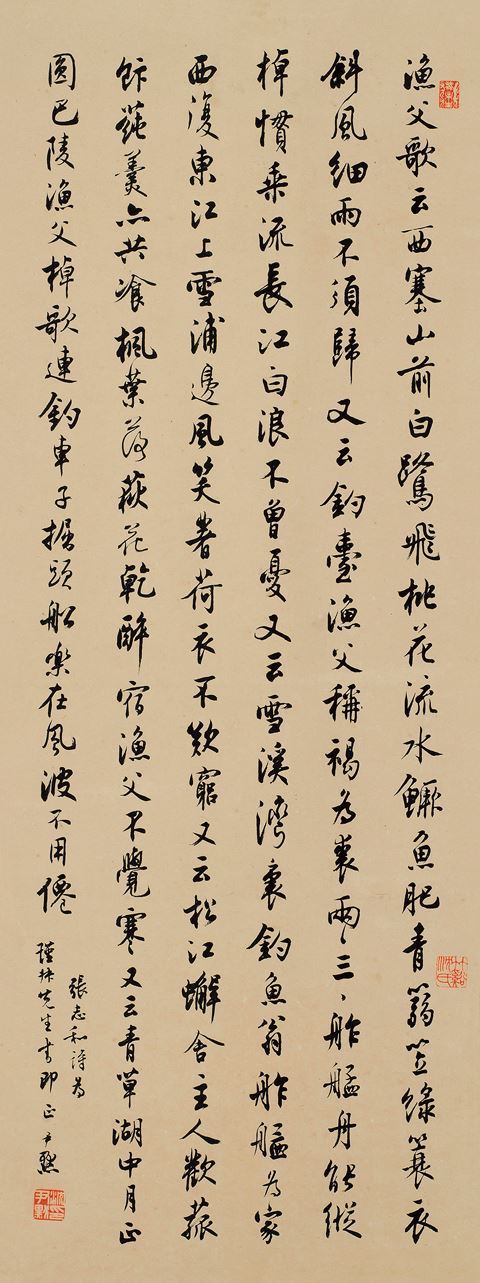 漁父歌云西塞山前白鷺飛桃花流水鱖魚肥青篛笠綠簑衣
斜風細雨不須歸又云釣臺漁父稱褐為裘兩〻三〻舴艋舟能縱
棹慣乘流長江白浪不曾憂又云雪溪灣裏釣魚翁舴艋為家
西復東江上雪浦邊風笑著荷衣不歎窮又云松江蠏舍主人歡菰
飰蓴羹亦共飡楓葉落荻花乾醉宿漁父不覺寒又云青草湖中月正
圓巴陵漁父棹歌連釣車子掘頭船樂在風波不用僊
張志和詩為
林先生書即正 尹默
竹谿沈氏